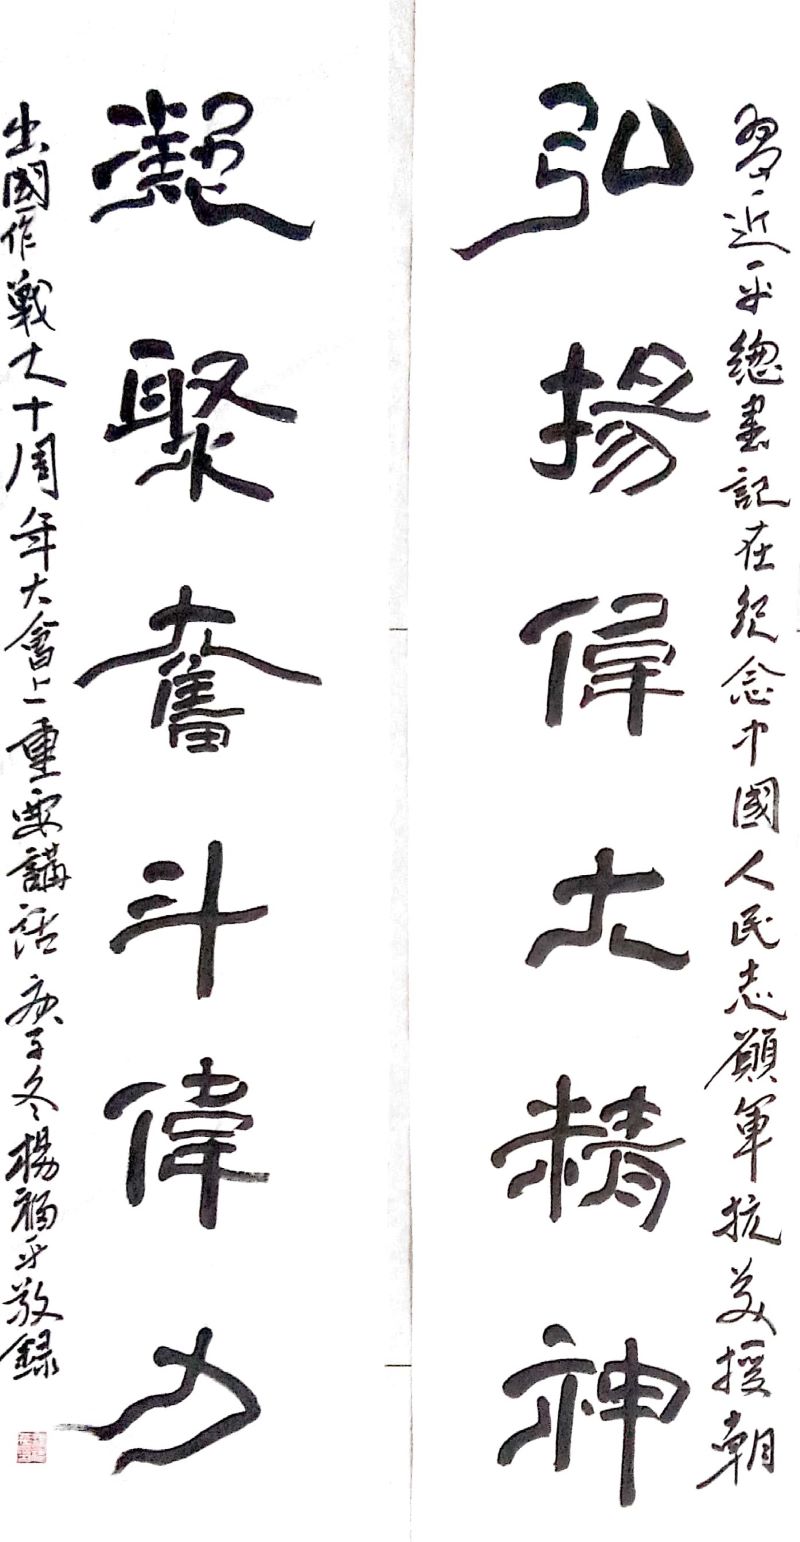 習近平總書記在紀念中國人民志願軍抗美援朝
弘揚偉大精神
凝聚奮斗偉力
出國作戰七十周年大會上重要講話 庚子冬楊福平敬録